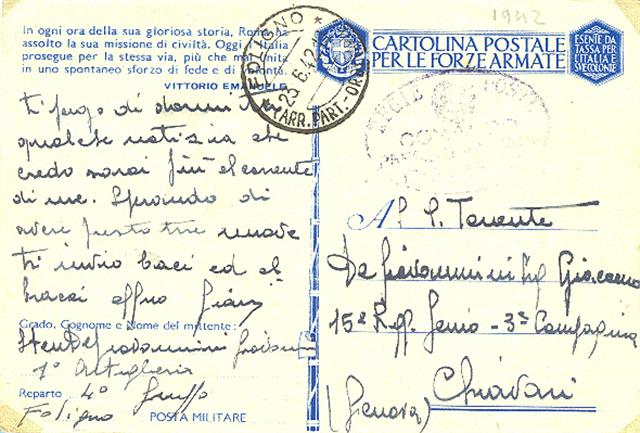 In ogni ora della sua gloriosa storia, Roma ha
assolto la sua missione di civiltà. Oggi l'Italia
prosegue per la stessa via, più che mai unita
in uno spontaneo sforzo di fede e di volontà.
VITTORIO EMANUELE
FOLIGNO
23.6.42
(ARR. PART.-ORD
1942
CARTOLINA POSTALE
PER LE FORZE ARMATE
ESENTE DA
TASSA PER
L'ITALIA E
SUE COLONIE
ti prego di darmi
qualche notizia che
credo sarai più al corrente
di me. Sperando di
avere presto tue nuove
ti invio baci ed ab
bracci affmo
Grado, Cognome e Nome del mittente:
Sten De Giovannini
1° Artiglieria
Reparto 4° Gruppo
Foligno POSTA MILITARE
Al S. Tenente
De Giovannini Sig Giacomo
15° Regg. Genio - 3ª Compagnia
Chiavari
(Genova)